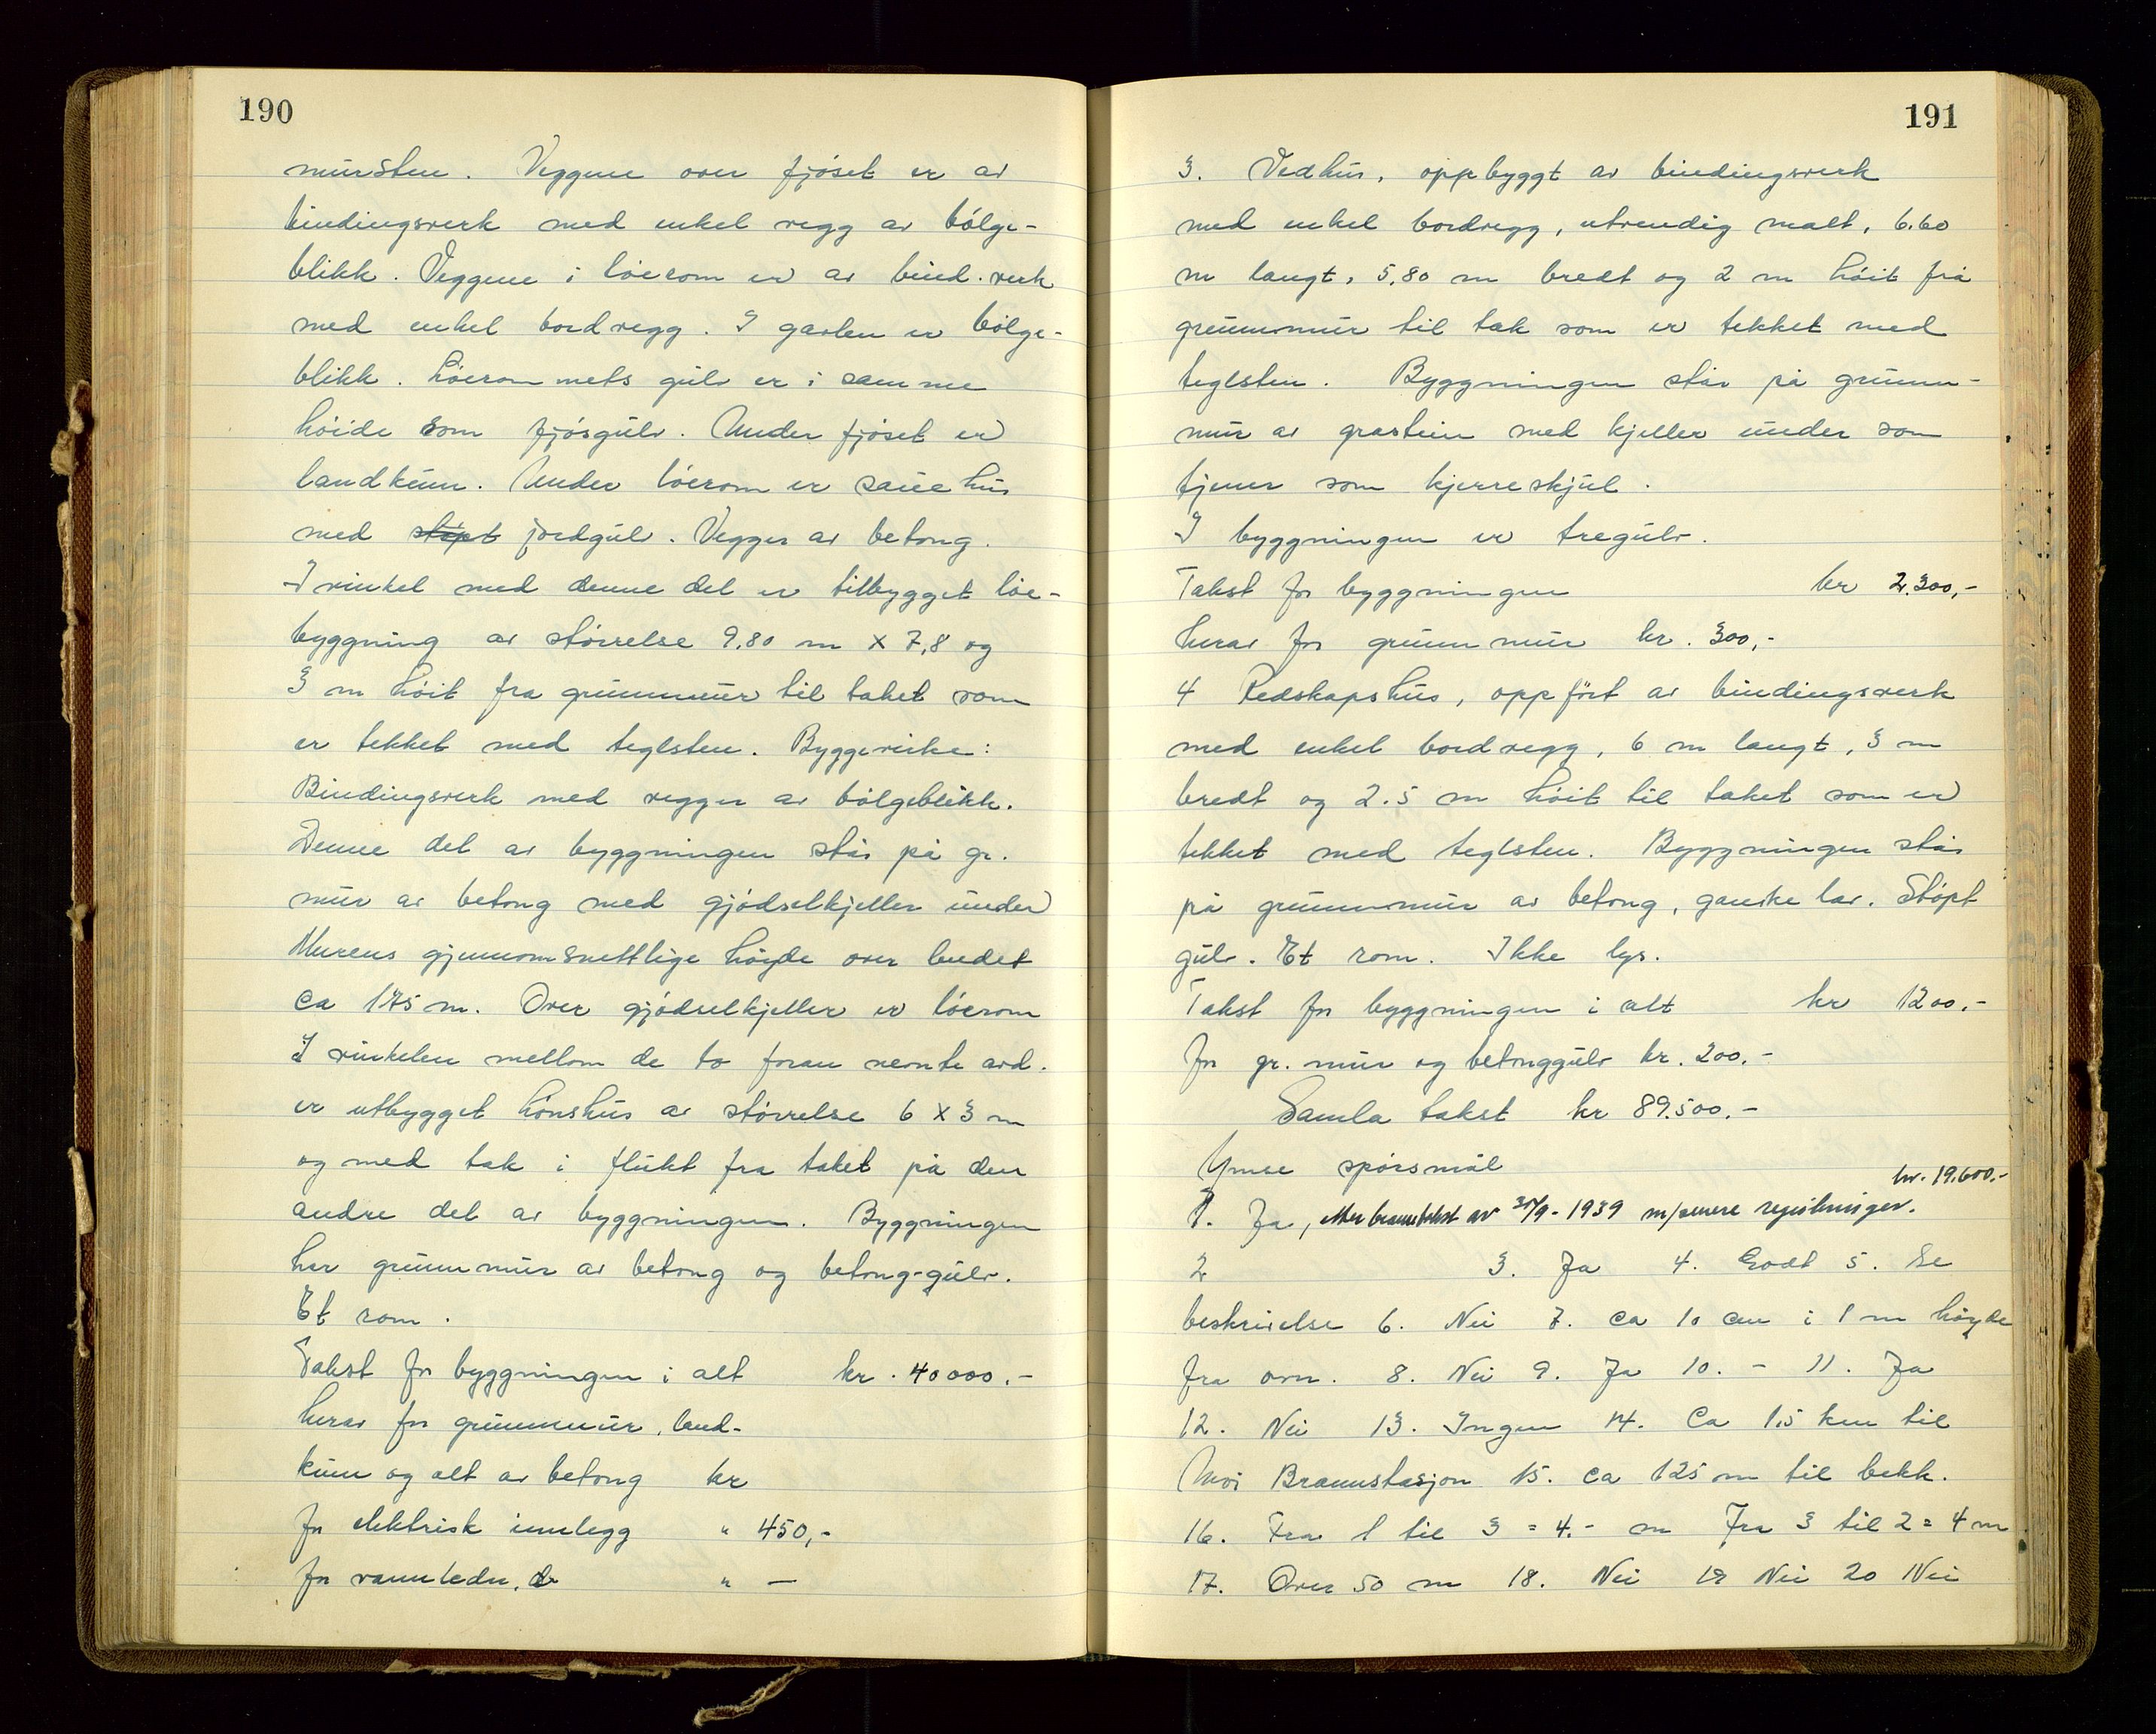 190
mursten. Veggene over fjøset er av
bindingsverk med enkel vegg av bølge-
blikk. Veggene i løerom er av bind.verk
med enkel bordvegg. I gavlen er bølge-
blikk. Løerommets gulv er i samme
høide som fjøsgulv. Under fjøset er
landkum. Under løerom er sauehus
med støpt jordgulv. Vegger av betong.
I vinkel med denne del er tilbygget løe-
byggning av størrelse 9.80 m x 7,8 og
3 m høit fra grunnmur til taket som
er tekket med teglsten. Byggevirke:
Bindingsverk med vegger av bølgeblikk.
Denne del av byggningen står på gr.
mur av betong med gjødselkjeller under
Murens gjennomsnettlige høyde over lendet
ca 1.75 m. Over gjødselkjeller er løerom
I vinkelen mellom de to foran nevnte avd.
er utbygget hønshus av størrelse 6 x 3 m
og med tak i flukt fra taket på den
andre del av byggningen. Byggningen
har grunnmur av betong og betong-gulv.
Et rom.
Takst for byggningen i alt kr. 40000.-
herav for grunnmur, land-
kum og alt av betong kr
for elektrisk innlegg " 450,-
for vannledn. " —
191
3. Vedhus, oppbyggt av bindingsverk
med enkel bordvegg, utvendig malt, 6.60
m langt, 5,80 m bredt og 2 m høit frå
grunnmur til tak som er tekket med
teglsten. Byggningen står på grunn-
mur av grastein med kjeller under som
tjener som kjerreskjul.
I byggningen er tregulv.
Takst for byggningen kr 2.300,-
herav for grunnmur kr. 300,-
4 Redskapshus, oppført av bindingsverk
med enkel bordvegg, 6 m langt, 3 m
bredt og 2.5 m høit til taket som er
tekket med teglsten. Byggningen står
på grunnmur av betong, ganske lav. Støpt
gulv. Et rom. Ikke lys.
Takst for byggningen i alt kr 1200.-
for gr. mur og betonggulv kr. 200.-
Samla takst kr 89.500.-
Ymse spørsmål
kr. 19.600.-
1. Ja, etter branntakst av 30/9-1939 m/senere
2 3. Ja 4. Godt 5. Se
beskrivelse 6. Nei 7. ca 10 cm i 1 m høyde
fra ovn. 8. Nei 9. Ja 10. - 11. Ja
12. Nei 13. Ingen 14. Ca 1,5 km til
Moi Brannstasjon 15. ca 125 m til bekk.
16. Fra 1 til 3 = 4.- m Fra 3 til 2 = 4 m
17. Over 50 m 18. Nei 19 Nei 20 Nei